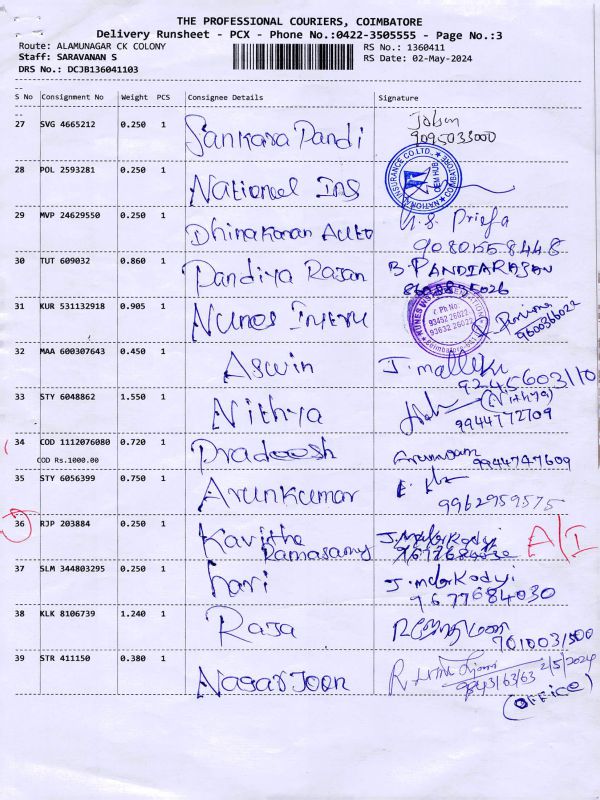 THE PROFESSIONAL COURIERS, COIMBATORE
Delivery Runsheet - PCX - Phone No.:0422-3505555 - Page No.:3
Route: ALAMUNAGAR CK COLONY
RS No.: 1360411
Staff: SARAVANAN S
RS Date: 02-May-2024
DRS No.: DCJB136041103
S No Consignment No Weight PCS Consignee Details Signature
27 SVG 4665212 0.250 1 Sankara Pandi
9095033000
28 POL 2593281 0.250 1 National INS
NATIONAL INSURANCE CO.LTD.
29 MVP 24629550 0.250 1 Dhinakaran Auto
90801558448
30 TUT 609032 0.860 1 Pandiya Rajan B. PANDIARAJAN
31 KUR 531132918 0.905 1
Ph No.
93452 26022
93632 26022
9600366022
32 MAA 600307643 0.450 1 Aswin
33 STY 6048862 1.550 1 Nithya (Nithya)
9944772709
34 COD 1112076080 0.720 1 Pradeesh
9944747609
COD Rs.1000.00
35 STY 6056399 0.750 1 Arunkumar
9962959575
36 RJP 203884 0.250 1 Kavitha Ramasamy
9677684030
A/I
37 SLM 344803295 0.250 1 hari
9677684030
38 KLK 8106739 1.240 1 Raja
39 STR 411150 0.380 1 Nagarjoon
2/5/2024
9843/63/63
(OFFICE)